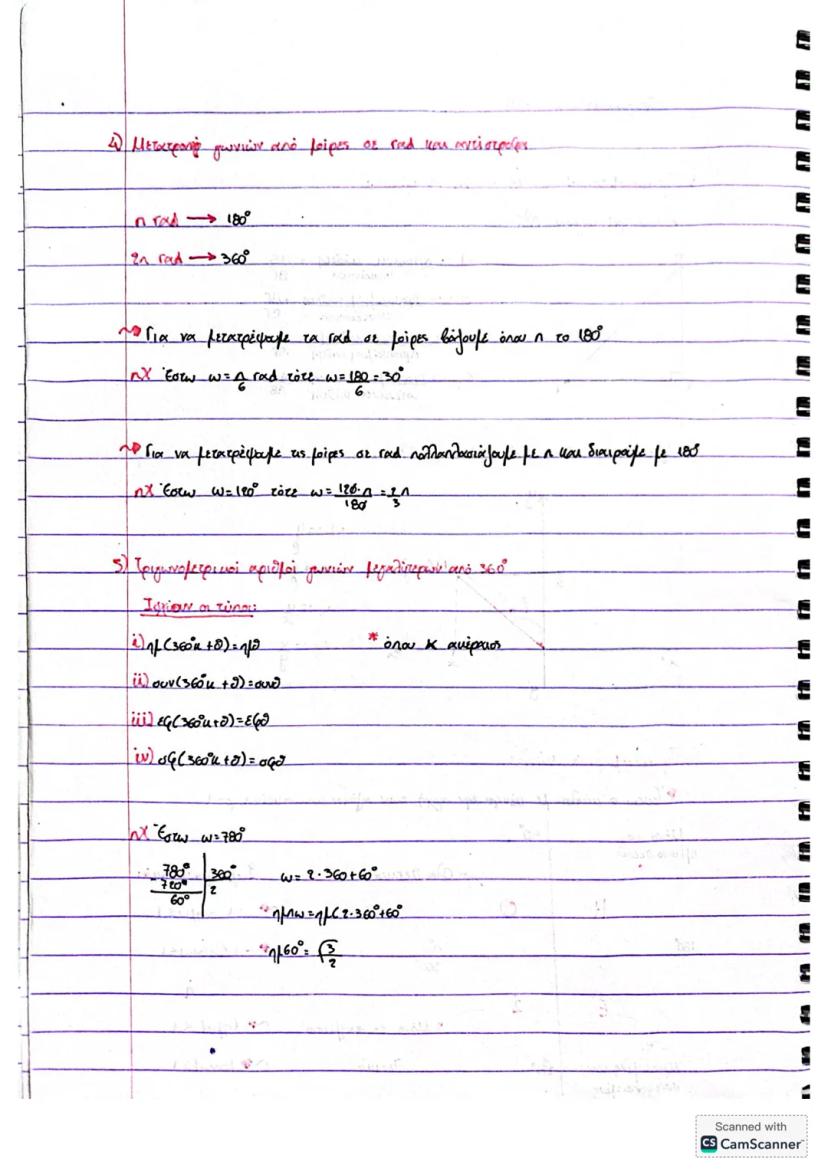 4) Μετατροπή γωνιών από μοίρες σε rad και αντίστροφα
π rad → 180°
2π rad → 360°
Για να μετατρέψουμε τα rad σε μοίρες βάζουμε όπου π το 180°
πχ Έστω ω = π/6 rad τότε ω = 180/6 = 30°
Για να μετατρέψουμε τις μοίρες σε rad πολλαπλασιάζουμε με π και διαιρούμε με 180
πχ Έστω ω = 120° τότε ω = 120·π/180 = 2π/3
5) Τριγωνομετρικοί αριθμοί γωνιών μεγαλύτερων από 360°
Ισχύουν οι τύποι:
i) ημ(360°κ + θ) = ημθ * όπου κ ακέραιος
ii) συν(360°κ + θ) = συνθ
iii) εφ(360°κ + θ) = εφθ
iv) σφ(360°κ + θ) = σφθ
πχ Έστω ω = 780°
780° | 360° ω = 2·360 + 60°
-720° | 2
60°
ημω = ημ(2·360° + 60°
ημ60° = √3/2
Scanned with
CS CamScanner